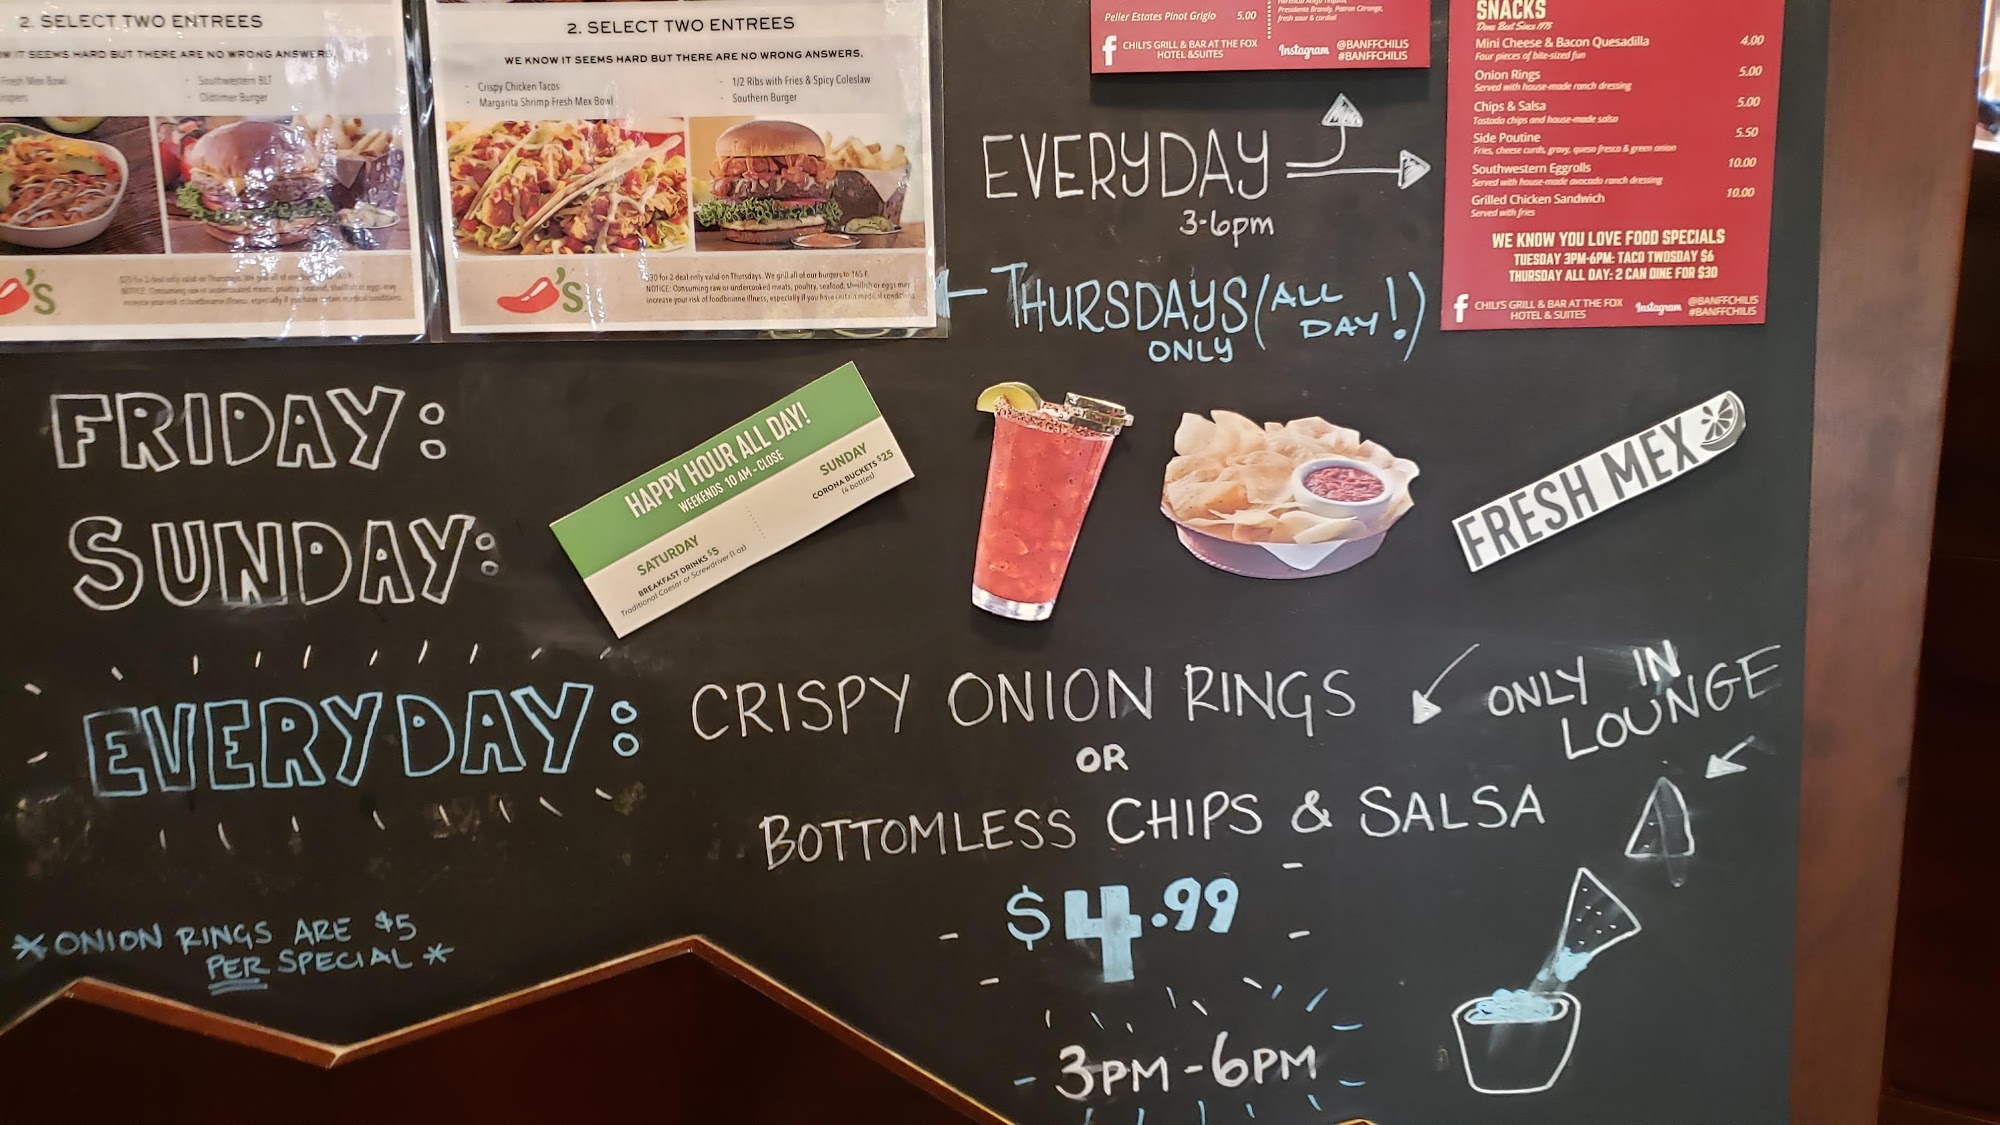 2. SELECT TWO ENTREES
W IT SEEMS HARD BUT THERE ARE NO WRONG ANSWERS.
Fresh Mex Bowl
Southwestern BLT
Oldtimer Burger
$25 for 2 deal only valid on Thursdays. We grill all of our burgers to 165 F.
NOTICE: Consuming raw or undercooked meats, poultry, seafood, shellfish or eggs may
increase your risk of foodbourne illness, especially if you have certain medical conditions.
'S
2. SELECT TWO ENTREES
WE KNOW IT SEEMS HARD BUT THERE ARE NO WRONG ANSWERS.
- Crispy Chicken Tacos
- Margarita Shrimp Fresh Mex Bowl
- 1/2 Ribs with Fries & Spicy Coleslaw
- Southern Burger
$30 for 2 deal only valid on Thursdays. We grill all of our burgers to 165 F.
NOTICE: Consuming raw or undercooked meats, poultry, seafood, shellfish or eggs may
increase your risk of foodbourne illness, especially if you have certain medical conditions.
's
Peller Estates Pinot Grigio 5.00
Presidente Brandy, Patron Citronge,
fresh sour & cordial
f CHILI'S GRILL & BAR AT THE FOX
HOTEL &SUITES
Instagram @BANFFCHILIS
#BANFFCHILIS
SNACKS
Done Best Since 1975
Mini Cheese & Bacon Quesadilla 4.00
Four pieces of bite-sized fun
Onion Rings 5.00
Served with house-made ranch dressing
Chips & Salsa 5.00
Tostada chips and house-made salsa
Side Poutine 5.50
Fries, cheese curds, gravy, queso fresco & green onion
Southwestern Eggrolls 10.00
Served with house-made avocado ranch dressing
Grilled Chicken Sandwich 10.00
Served with fries
WE KNOW YOU LOVE FOOD SPECIALS
TUESDAY 3PM-6PM: TACO TWOSDAY $6
THURSDAY ALL DAY: 2 CAN DINE FOR $30
f CHILI'S GRILL & BAR AT THE FOX
HOTEL & SUITES
Instagram @BANFFCHILIS
#BANFFCHILIS
EVERYDAY
3-6pm
THURSDAYS (ALL DAY!)
ONLY
FRIDAY:
SUNDAY:
HAPPY HOUR ALL DAY!
WEEKENDS 10 AM - CLOSE
SATURDAY
BREAKFAST DRINKS $5
Traditional Caesar or Screwdriver (1 oz)
SUNDAY
CORONA BUCKETS $25
(4 bottles)
FRESH MEX
EVERYDAY: CRISPY ONION RINGS
OR
BOTTOMLESS CHIPS & SALSA
ONLY IN
LOUNGE
$4.99
3PM - 6PM
*ONION RINGS ARE $5
PER SPECIAL*